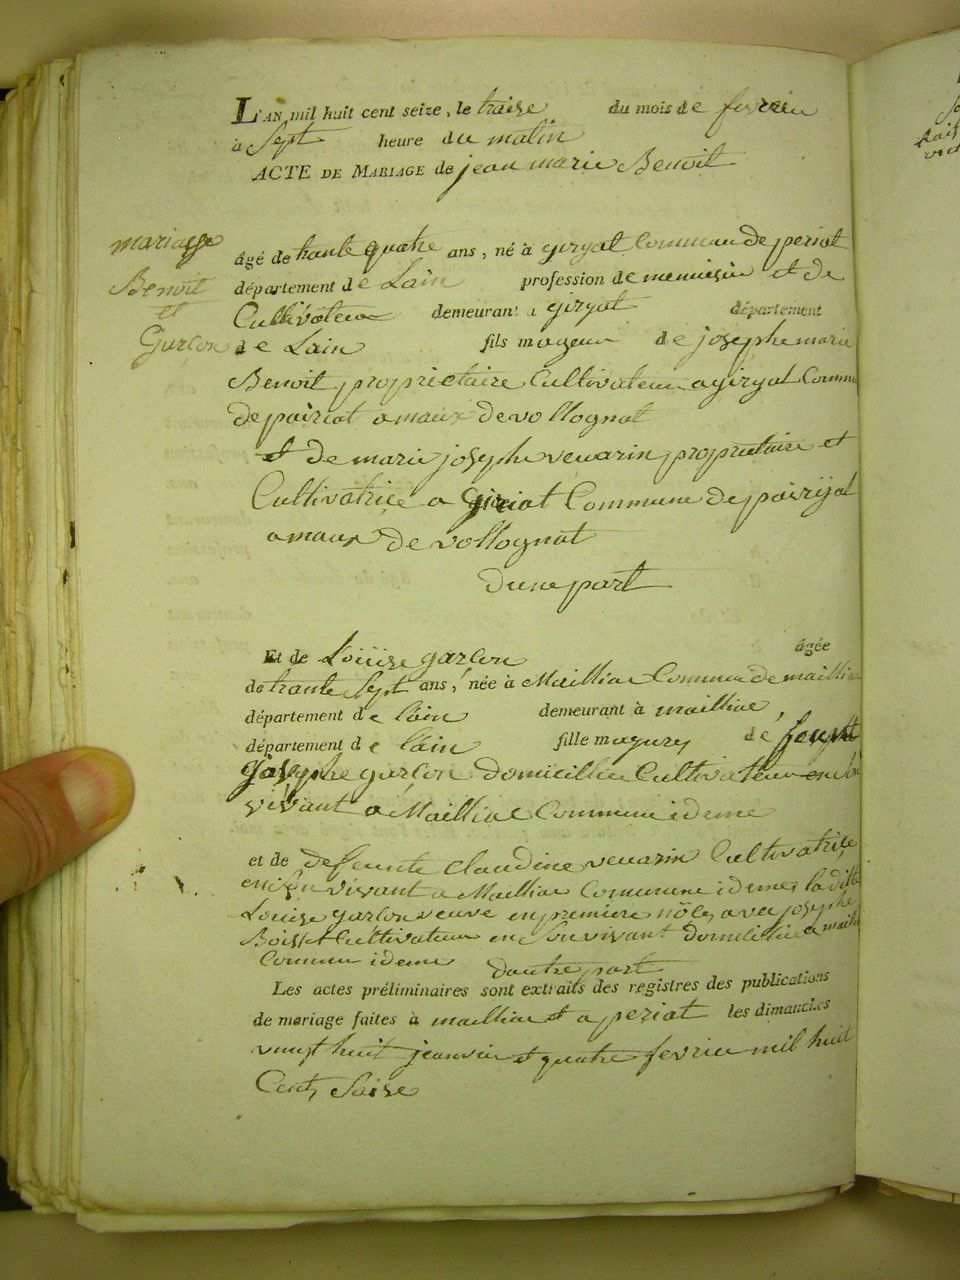 L'AN mil huit cent seize, le traize du mois de fevrieu
a Sept heure du matin
ACTE DE MARIAGE de jean marie Benoit
mariage
Benoit
et
Garcon
âgé de trante quatre ans, né à giryat Commun de periat
département de Lain profession de menuisiu et de
Cultivateu demeurant a giryat département
de Lain fils mageur de josephe marie
Benoit proprietaire Cultivateu a giryat Commu
de pairiat amaux de vollognat
et de marie josephe veuarin proprietaire et
Cultivatriçe a Giriat Commune de pairijat
amaux de vollognat
dune part
Et de Loüise garcon âgée
de trante Sept ans, née à Mailliac Commun de maillia
département de lain demeurant à mailliac,
département de lain fille magure de feu
Josephe garcon domicillie Cultivateu en son
vivant a Mailliac Commune ideme
et de defeunte claudine veuarin Cultivatriçe
en son vivant a Mailliac Commune ideme, la ditte
Louise garcon veuve en premiere nôce avec josephe
Boisset Cultivateu en Son vivant domicillie a maillia
Commun ideme dautre part
Les actes préliminaires sont extraits des registres des publications
de mariage faites à mailliac et a periat les dimanches
vingt huit jeanvie et quatre fevrieu mil huit
Cent Saize